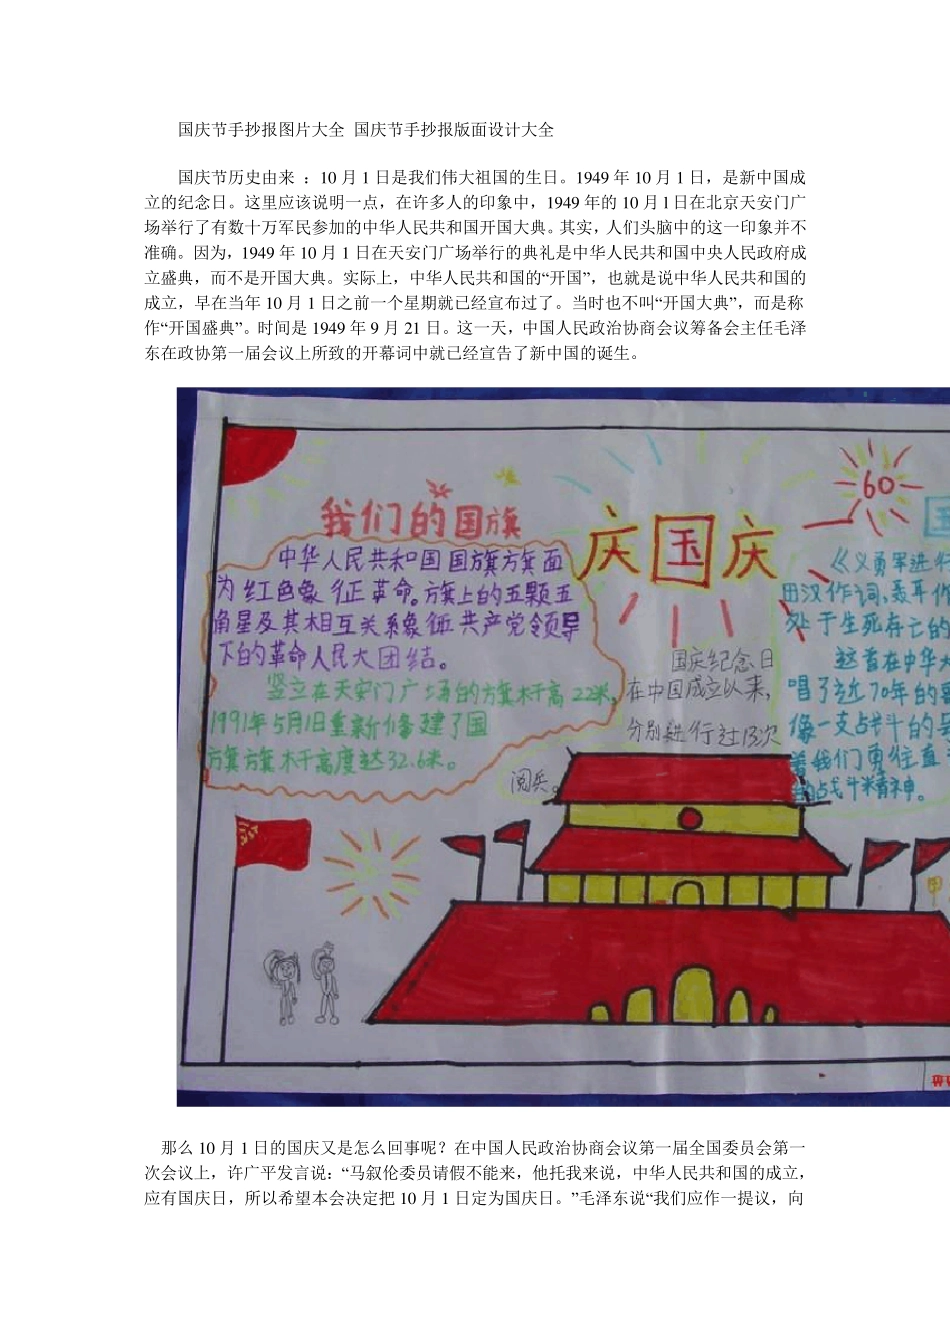 国庆节手抄报图片大全 国庆节手抄报版面设计大全
国庆节历史由来 ：10 月 1 日是我们伟大祖国的生日。1949 年 10 月 1 日，是新中国成
立的纪念日。这里应该说明一点，在许多人的印象中，1949 年的 10 月 l 日在北京天安门广
场举行了有数十万军民参加的中华人民共和国开国大典。其实，人们头脑中的这一印象并不
准确。因为，1949 年 10 月 1 日在天安门广场举行的典礼是中华人民共和国中央人民政府成
立盛典，而不是开国大典。实际上，中华人民共和国的“开国”，也就是说中华人民共和国的
成立，早在当年 10 月 1 日之前一个星期就已经宣布过了。当时也不叫“开国大典”，而是称
作“开国盛典”。时间是 1949 年 9 月 21 日。这一天，中国人民政治协商会议筹备会主任毛泽
东在政协第一届会议上所致的开幕词中就已经宣告了新中国的诞生。
我们的国旗
中华人民共和国国旗旗面
为红色象征革命。旗上的五颗五
角星及其相互关系象征共产党领导
下的革命人民大团结。
竖立在天安门广场的旗杆高22米,
1991年5月1日重新修建了国
旗旗杆高度达32.6米。
庆国庆
国庆纪念日
在中国成立以来,
分别进行过13次
阅兵。
60
国
《义勇军进行
田汉作词,聂耳作
处于生死存亡的
这首在中华大
唱了近70年的
像一支战斗的
着我们勇往直
的战斗精神。
那么 10 月 1 日的国庆又是怎么回事呢？在中国人民政治协商会议第一届全国委员会第一
次会议上，许广平发言说：“马叙伦委员请假不能来，他托我来说，中华人民共和国的成立，
应有国庆日，所以希望本会决定把 10 月 1 日定为国庆日。”毛泽东说“我们应作一提议，向